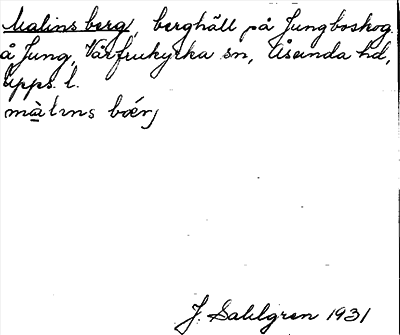 Malins berg, berghäll på Jungboskog
å Jung, Vårfrukyrka sn, Åsunda hd,
Upps. l.
màlɩns bœ́rj
J. Sahlgren 1931